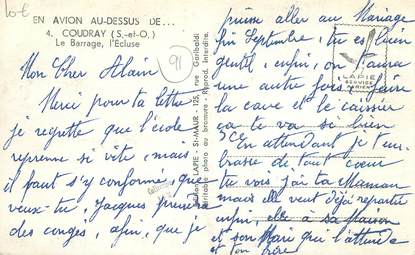 EN AVION AU-DESSUS DE...
4. COUDRAY (S.-et-O.)
Le Barrage, l'Ecluse
91
Mon Cher Alain
Merci pour ta lettre
je regrette que l'école
reprenne si vite, mais
il faut s'y conformer, que
veux-tu, Jacques prendra
des congés, afin, que je
LAPIE - St-MAUR - 125, rue Garibaldi
Véritable photo au bromure - Reprod. interdite.
LAPIE
SERVICE
AERIEN
puisse aller au Mariage
fin Septembre, tu es bien
gentil, enfin, on t'aura
une autre fois, faire
la cave et le caissier
ça te va si bien
En attendant je t'em-
brasse de tout coeur
tu vois j'ai ta Maman
mais elle veut déjà repartir
enfin, elle a sa Maison
et son Mari qui l'attend
et ton frère